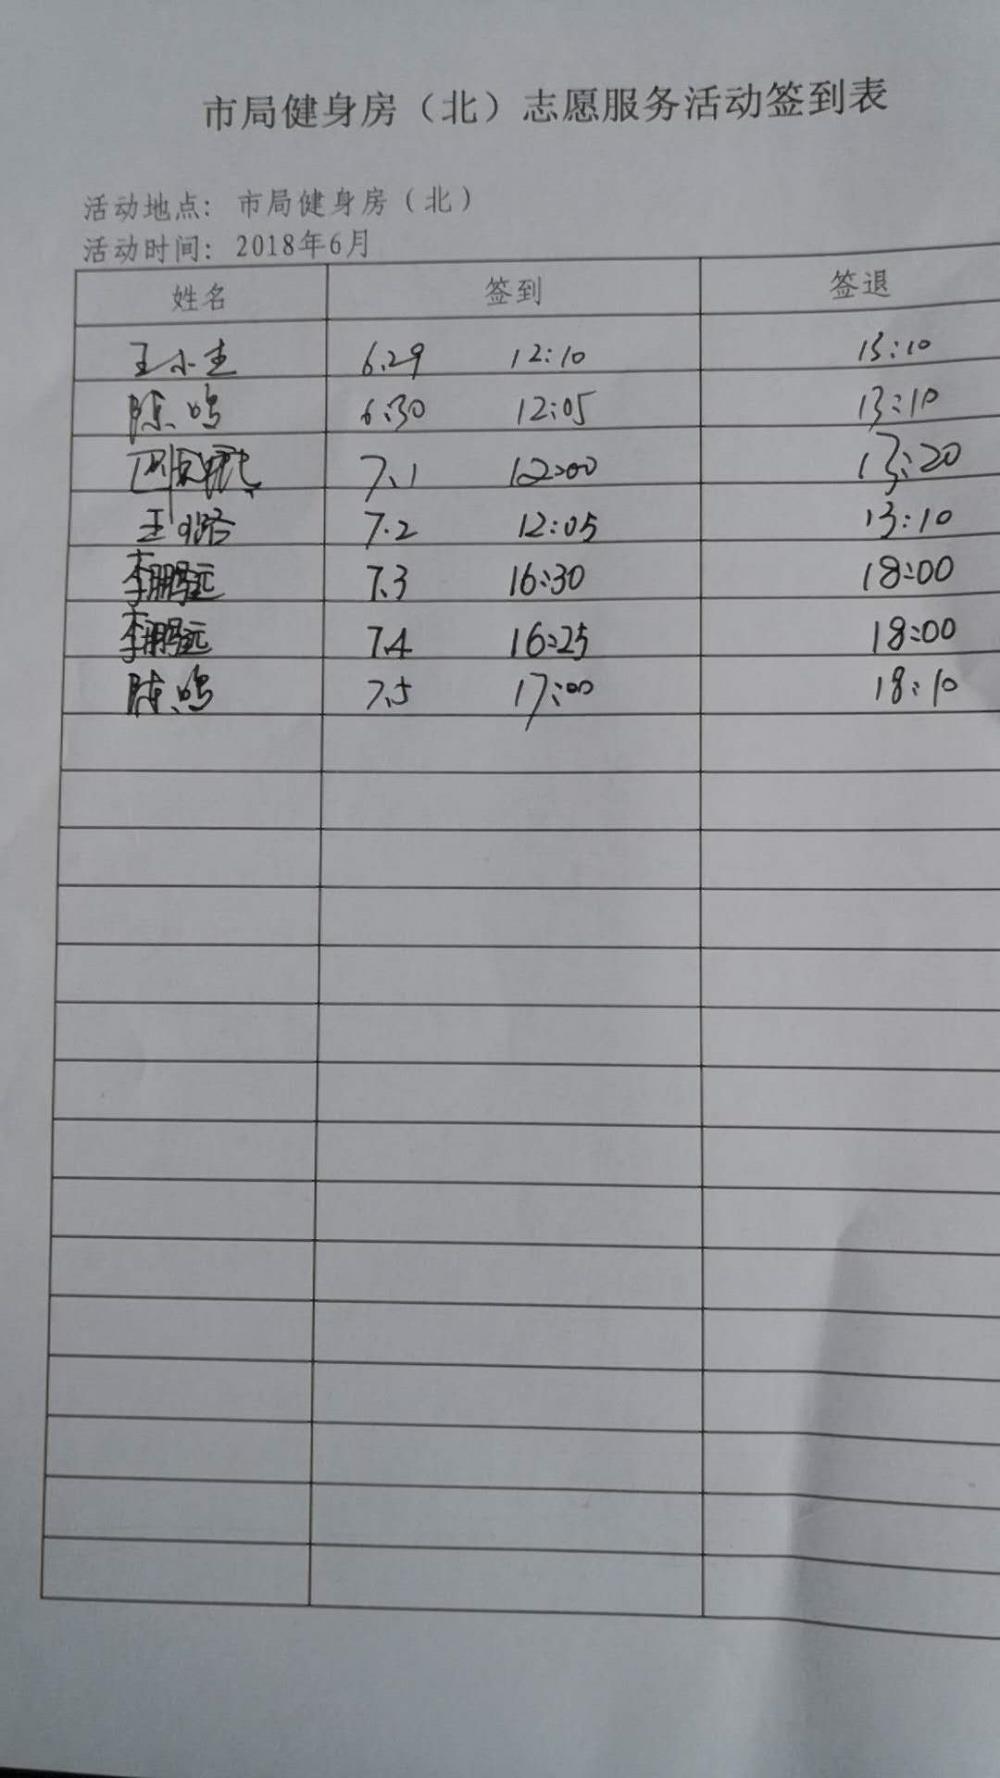 市局健身房（北）志愿服务活动签到表
活动地点：市局健身房（北）
活动时间：2018年6月
姓名 签到 签退
王小圭 6.29 12:10 13:10
陈鸣 6:30 12:05 13:10
7.1 12:00 13:20
王 7.2 12:05 13:10
李鹏远 7.3 16:30 18:00
李鹏远 7.4 16:25 18:00
陈鸣 7.5 17:00 18:10